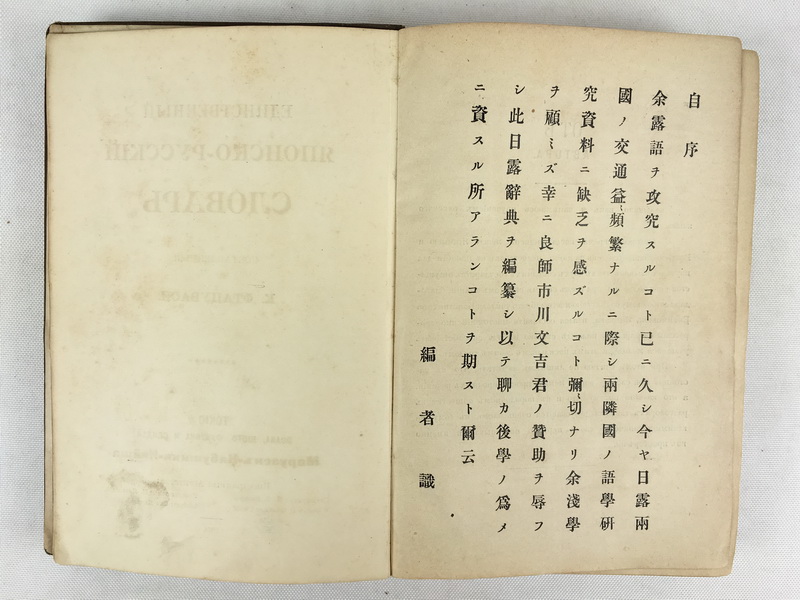 ЕДИНСТВЕННЫЙ
ЯПОНСКО-РУССКІЙ
СЛОВАРЬ
自序
余露語ヲ攻究スルコト已ニ久シ今ヤ日露兩
國ノ交通益〻頻繁ナルニ際シ兩隣國ノ語學硏
究資料ニ缺乏ヲ感ズルコト彌〻切ナリ余淺學
ヲ顧ミズ幸ニ良師市川文吉君ノ贊助ヲ辱フ
シ此日露辭典ヲ編纂シ以テ聊カ後學ノ爲メ
ニ資スル所アランコトヲ期スト爾云
編者識